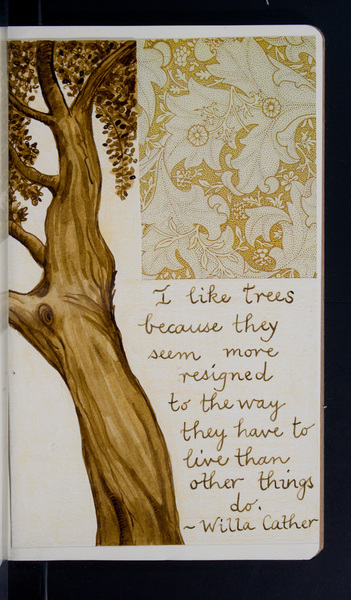 I like trees
because they
seem more
resigned
to the way
they have to
live than
other things
do.
~ Willa Cather